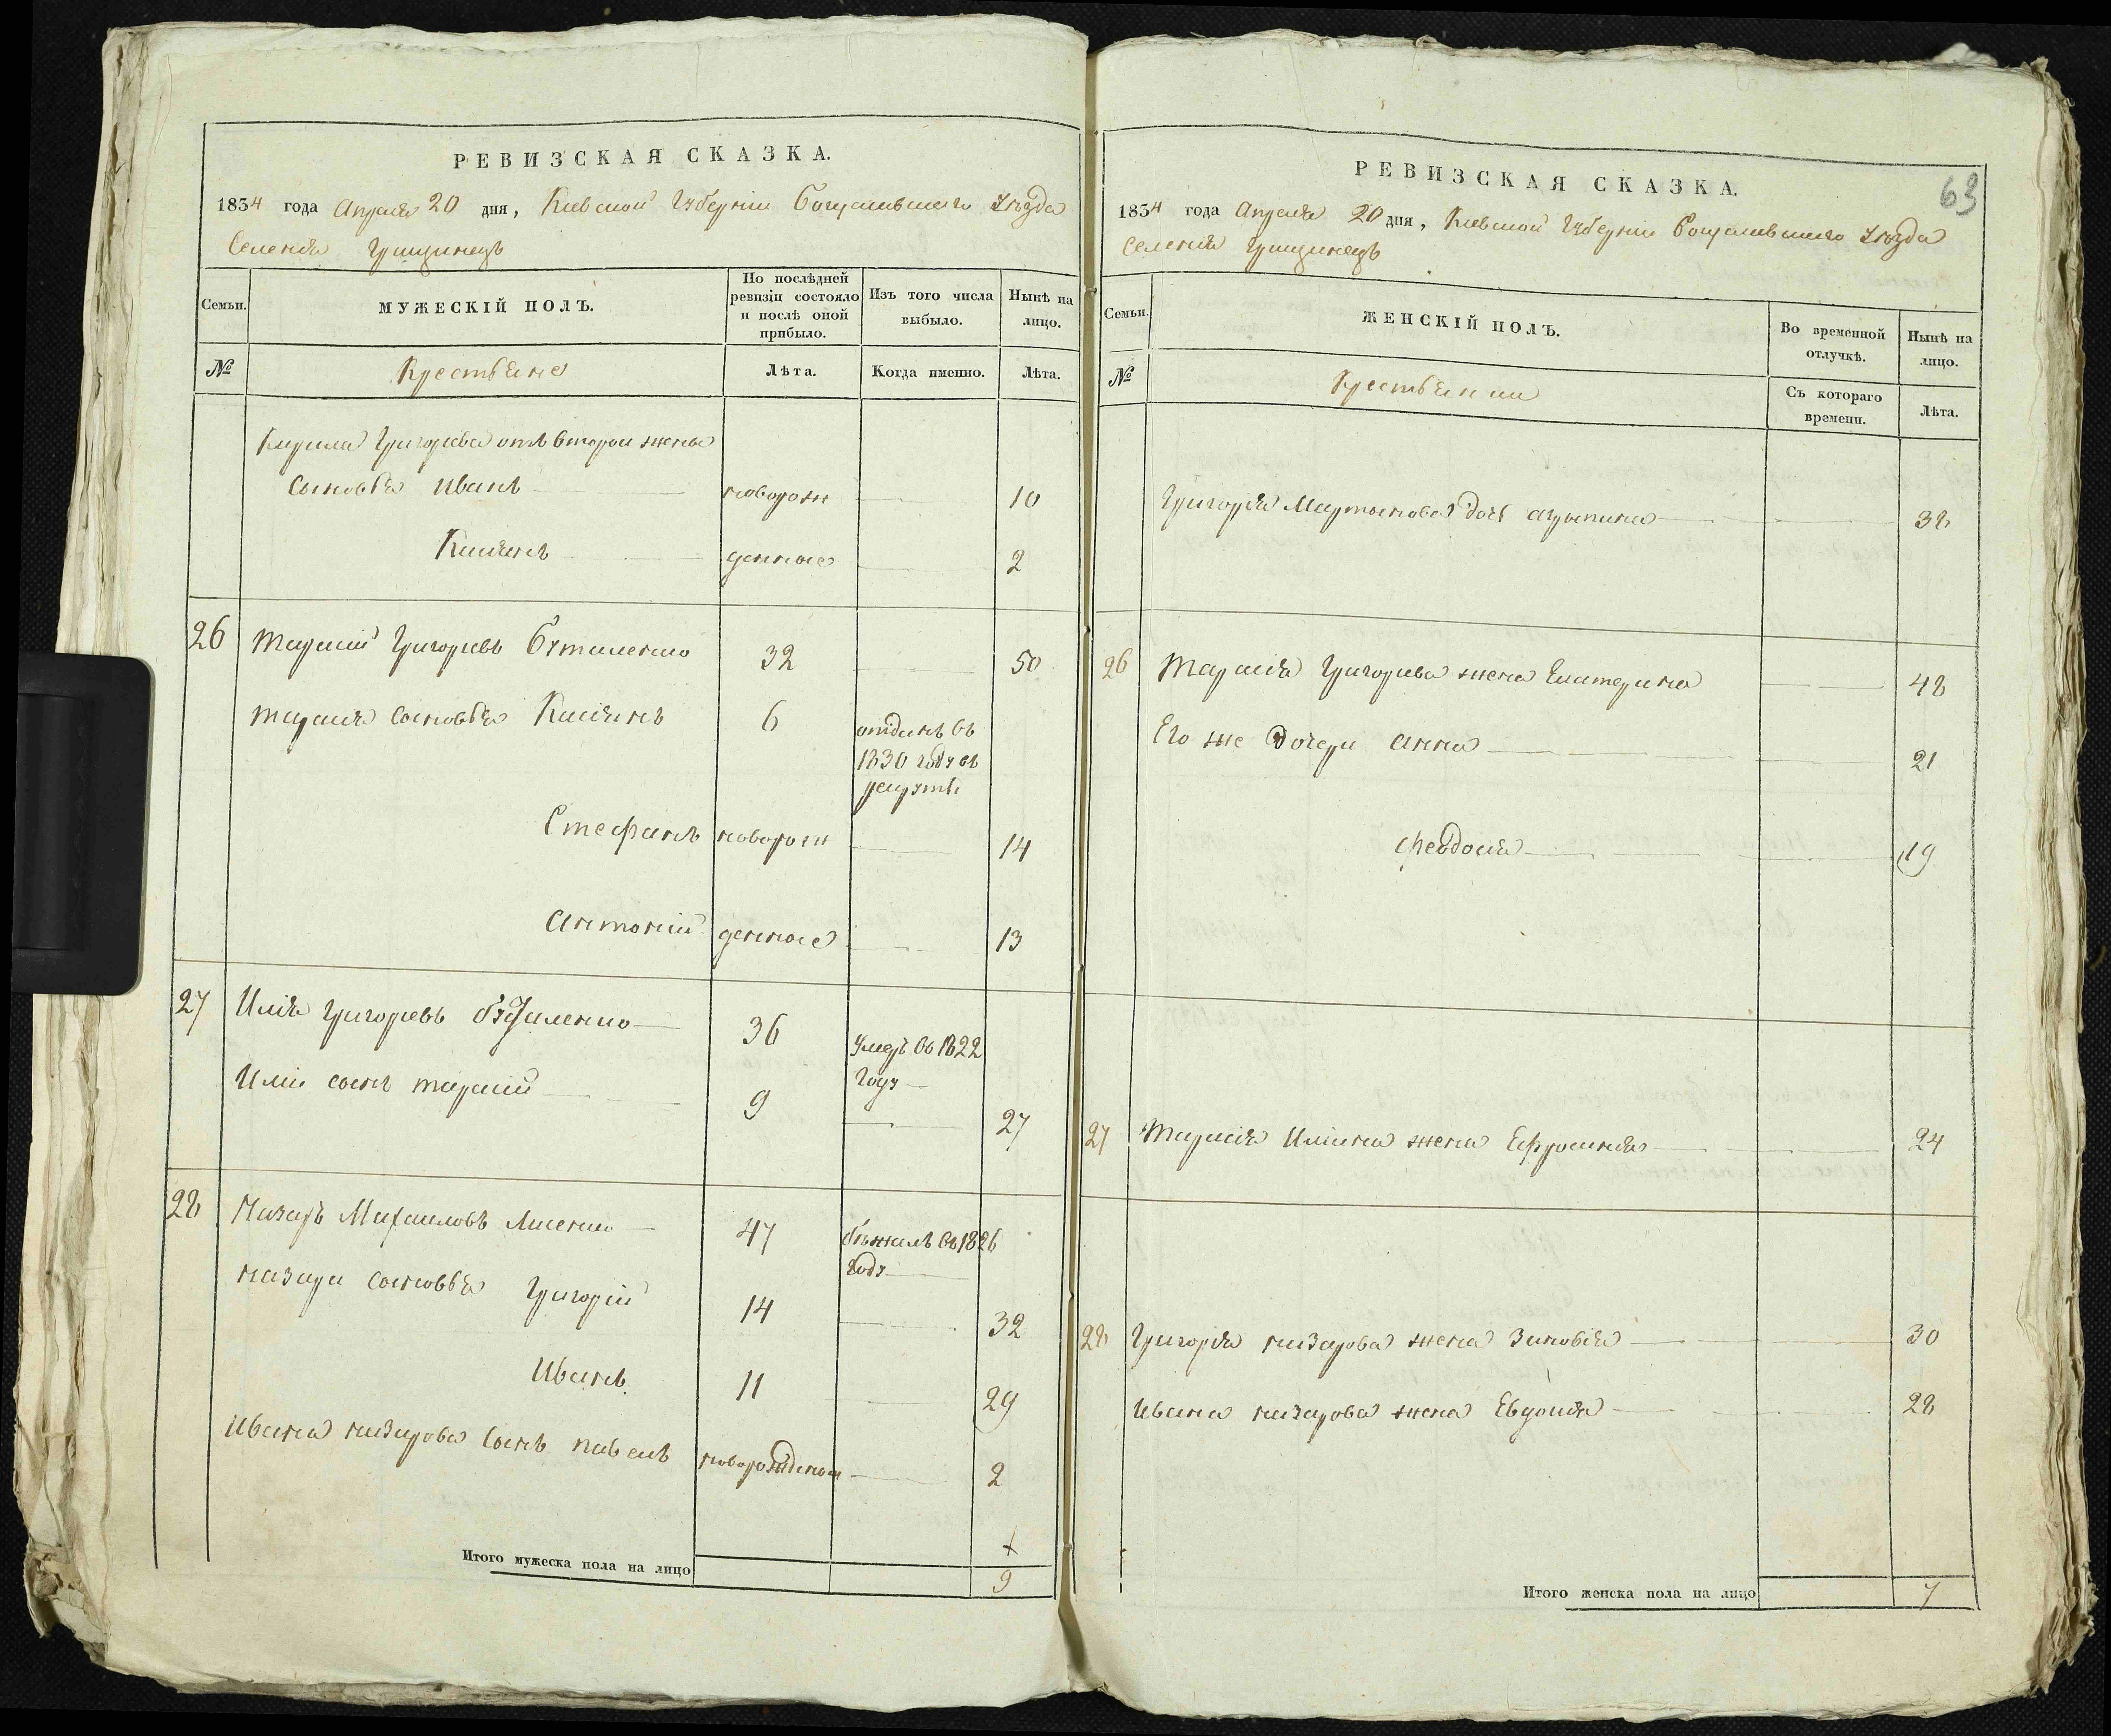 РЕВИЗСКАЯ СКАЗКА.
1834 года Апреля 20 дня, Киевской Губерніи Богуславскаго Уезда
Селенія Грищинецъ
Семьи. МУЖЕСКІЙ ПОЛЪ. По послѣдней ревизіи состояло и послѣ оной прибыло. Изъ того числа выбыло. Нынѣ на лицо.
№ Крестьяне Лѣта. Когда именно. Лѣта.
Кирила Григорьева отъ второй жены
Сыновья Иванъ новорож 10
Касіянъ денные 2
26 Тарасій Григорьевъ 32 50
Тарасія Сыновья Касіянъ 6 отданъ въ
1830 году въ
рекруты
Стефанъ новорож 14
Антоній денные 13
27 Илія Григорьевъ 36 умеръ въ 1822
году
Иліи сынъ Тарасій 9 27
28 Назаръ Михаиловъ Лисенко 47 бѣжалъ въ 1826
году
Назара сыновья Григорій 14 32
Иванъ 11 29
Ивана Назарова сынъ Павелъ новорожденный 2
Итого мужеска пола на лицо 9
63
РЕВИЗСКАЯ СКАЗКА.
1834 года Апреля 20 дня, Киевской Губерніи Богуславскаго Уезда
Селенія Грищинецъ
Семьи. ЖЕНСКІЙ ПОЛЪ. Во временной отлучкѣ. Нынѣ на лицо.
№ Крестьянки Съ котораго времени. Лѣта.
Григорія Мартынова дочь Агрыпина 38
26 Тарасія Григорьева жена Екатерина 48
Его же дочери Анна 21
Феодосія 19
27 Тарасія Иліина жена Ефросинія 24
28 Григорія Назарова жена Зиновія 30
Ивана Назарова жена Евдокія 28
Итого женска пола на лицо 7